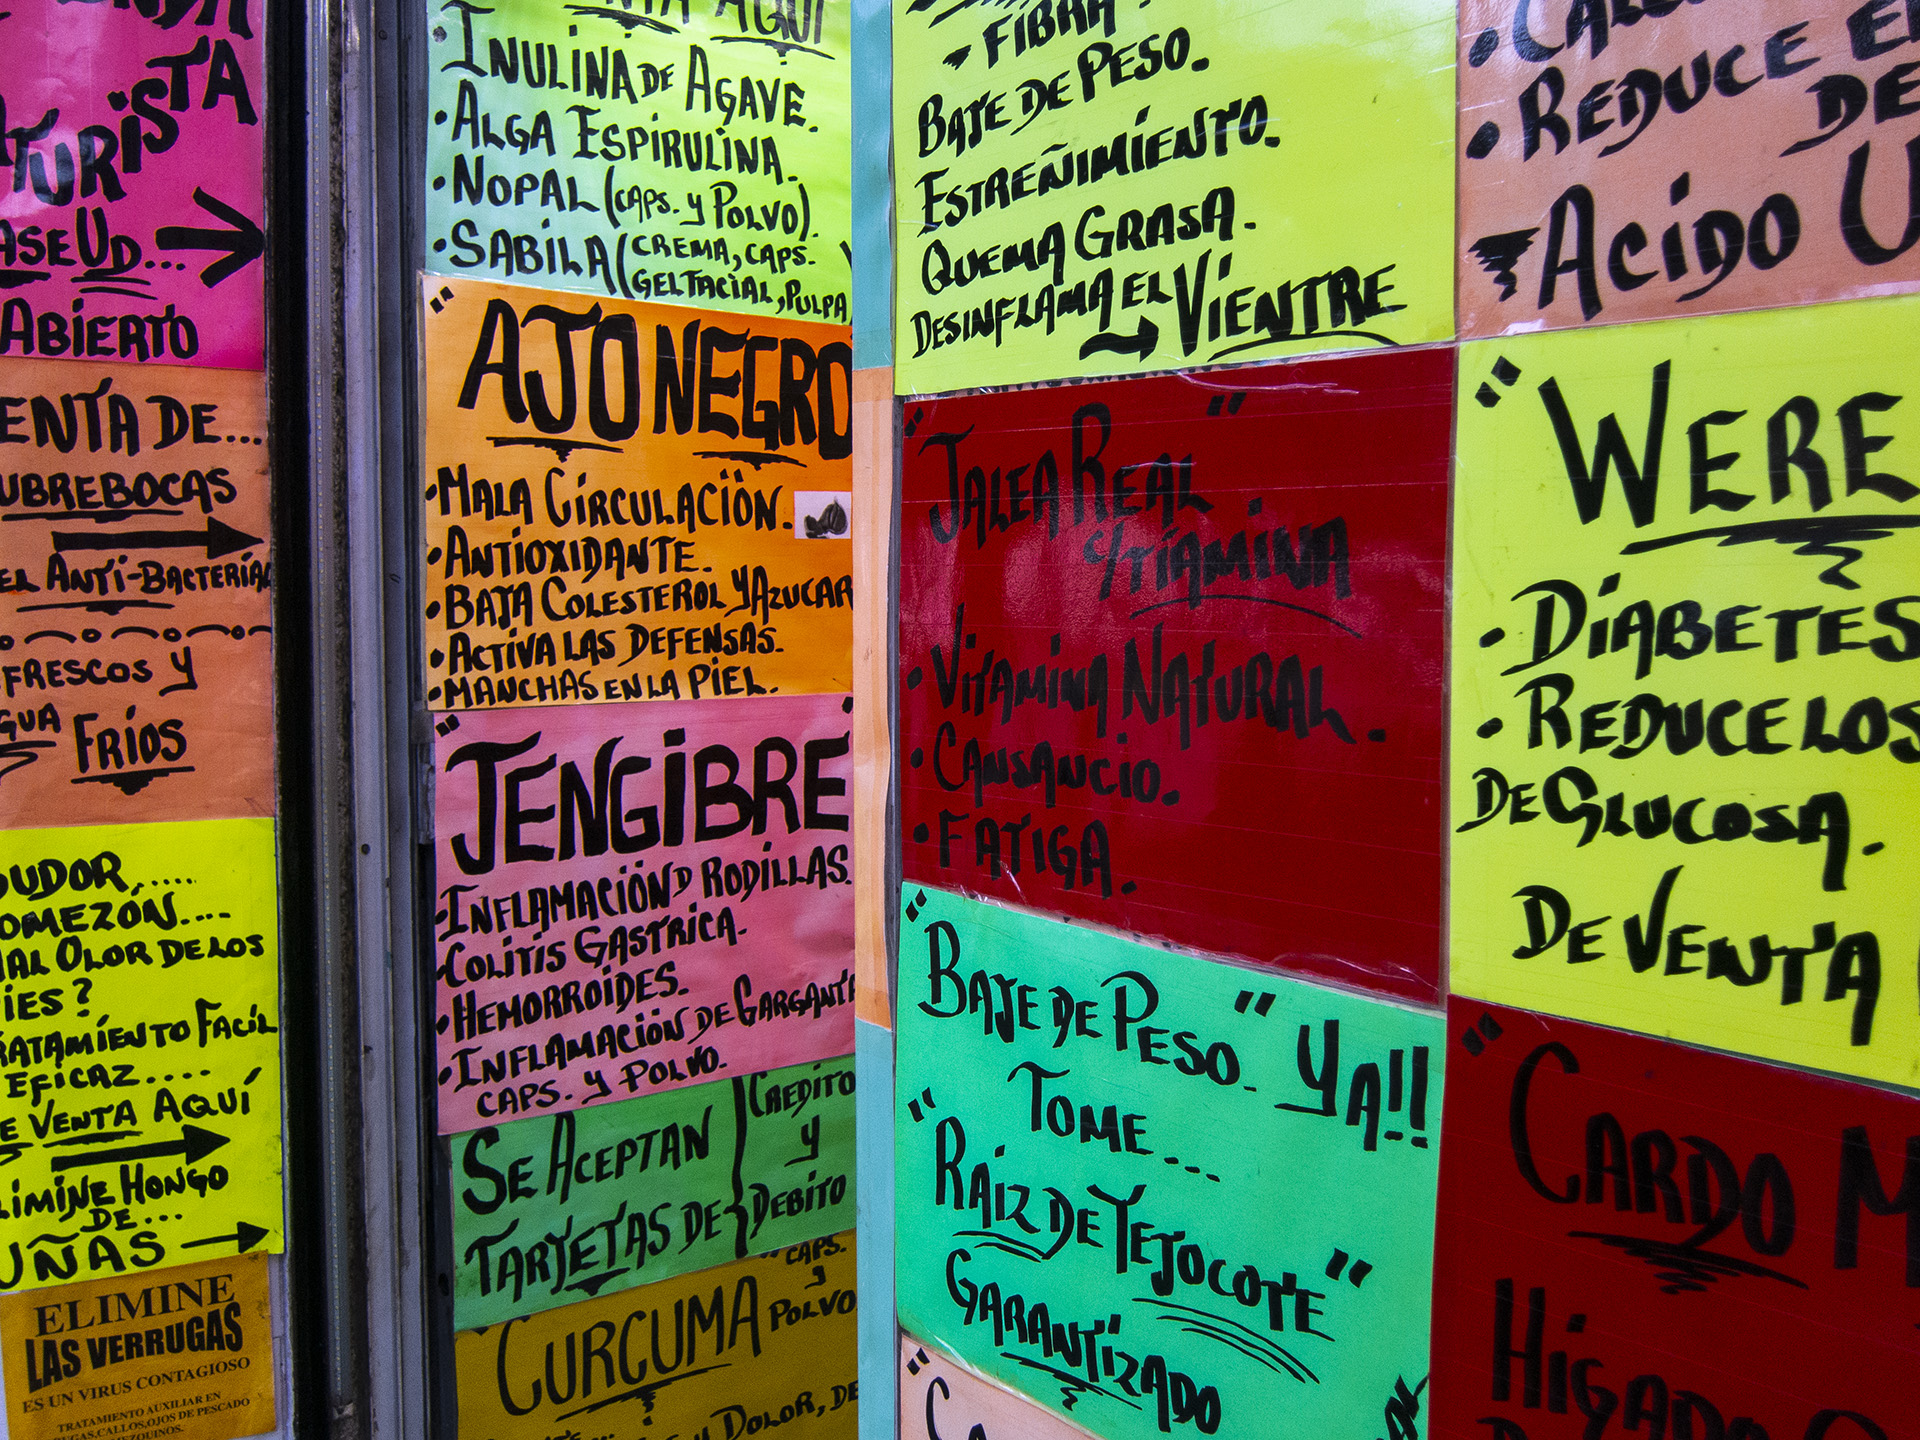 ABIERTO
DE...
ANTI-BACTERIAL
Y
FRÍOS
OLOR DE LOS
FACÍL
EFICAZ....
VENTA AQUÍ
HONGO
DE...
UÑAS
ELIMINE
LAS VERRUGAS
ES UN VIRUS CONTAGIOSO
TRATAMIENTO AUXILIAR EN
CALLOS,OJOS DE PESCADO
AQUÍ
•INULINA DE AGAVE.
•ALGA ESPIRULINA.
•NOPAL (CAPS. Y POLVO).
•SABILA (CREMA, CAPS.
GEL FACIAL, PULPA
"AJO NEGRO
•MALA CIRCULACIÖN.
•ANTIOXIDANTE.
•BAJA COLESTEROL Y AZUCAR
•ACTIVA LAS DEFENSAS.
•MANCHAS EN LA PIEL.
"JENGIBRE"
•INFLAMACIÓN D RODILLAS.
•COLITIS GASTRICA.
•HEMORROIDES.
•INFLAMACIÖN DE GARGANTA
CAPS. Y POLVO.
SE ACEPTAN
TARJETAS DE
CREDITO
Y
DEBITO
"CURCUMA
CAPS.
Y
POLVO
DOLOR, DE
FIBRA
BAJE DE PESO.
ESTREÑIMIENTO.
QUEMA GRASA.
DESINFLAMA EL VIENTRE
"JALEA REAL"
C/TIAMINA
•VITAMINA NATURAL.
•CANSANCIO.
•FATIGA.
"BAJE DE PESO." YA!!
TOME...
"RAIZ DE TEJOCOTE"
GARANTIZADO
•REDUCE
ACIDO
"WERE
•DIABETES
•REDUCE LOS
DE GLUCOSA.
DE VENTA
"CARDO
HIGADO